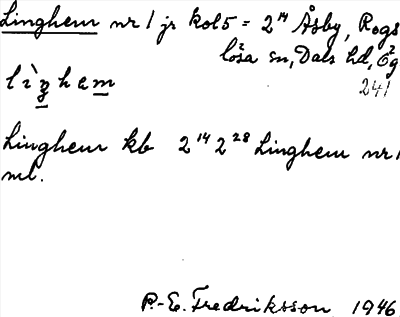 Linghem nr 1 jr kol 5 = 2¹⁴ Åsby, Rogs
lösa sn, Dals hd, Ög
241
Linghem kb 2¹⁴ 2²⁸ Linghem nr 1
ml.
P.-E. Fredriksson 1946